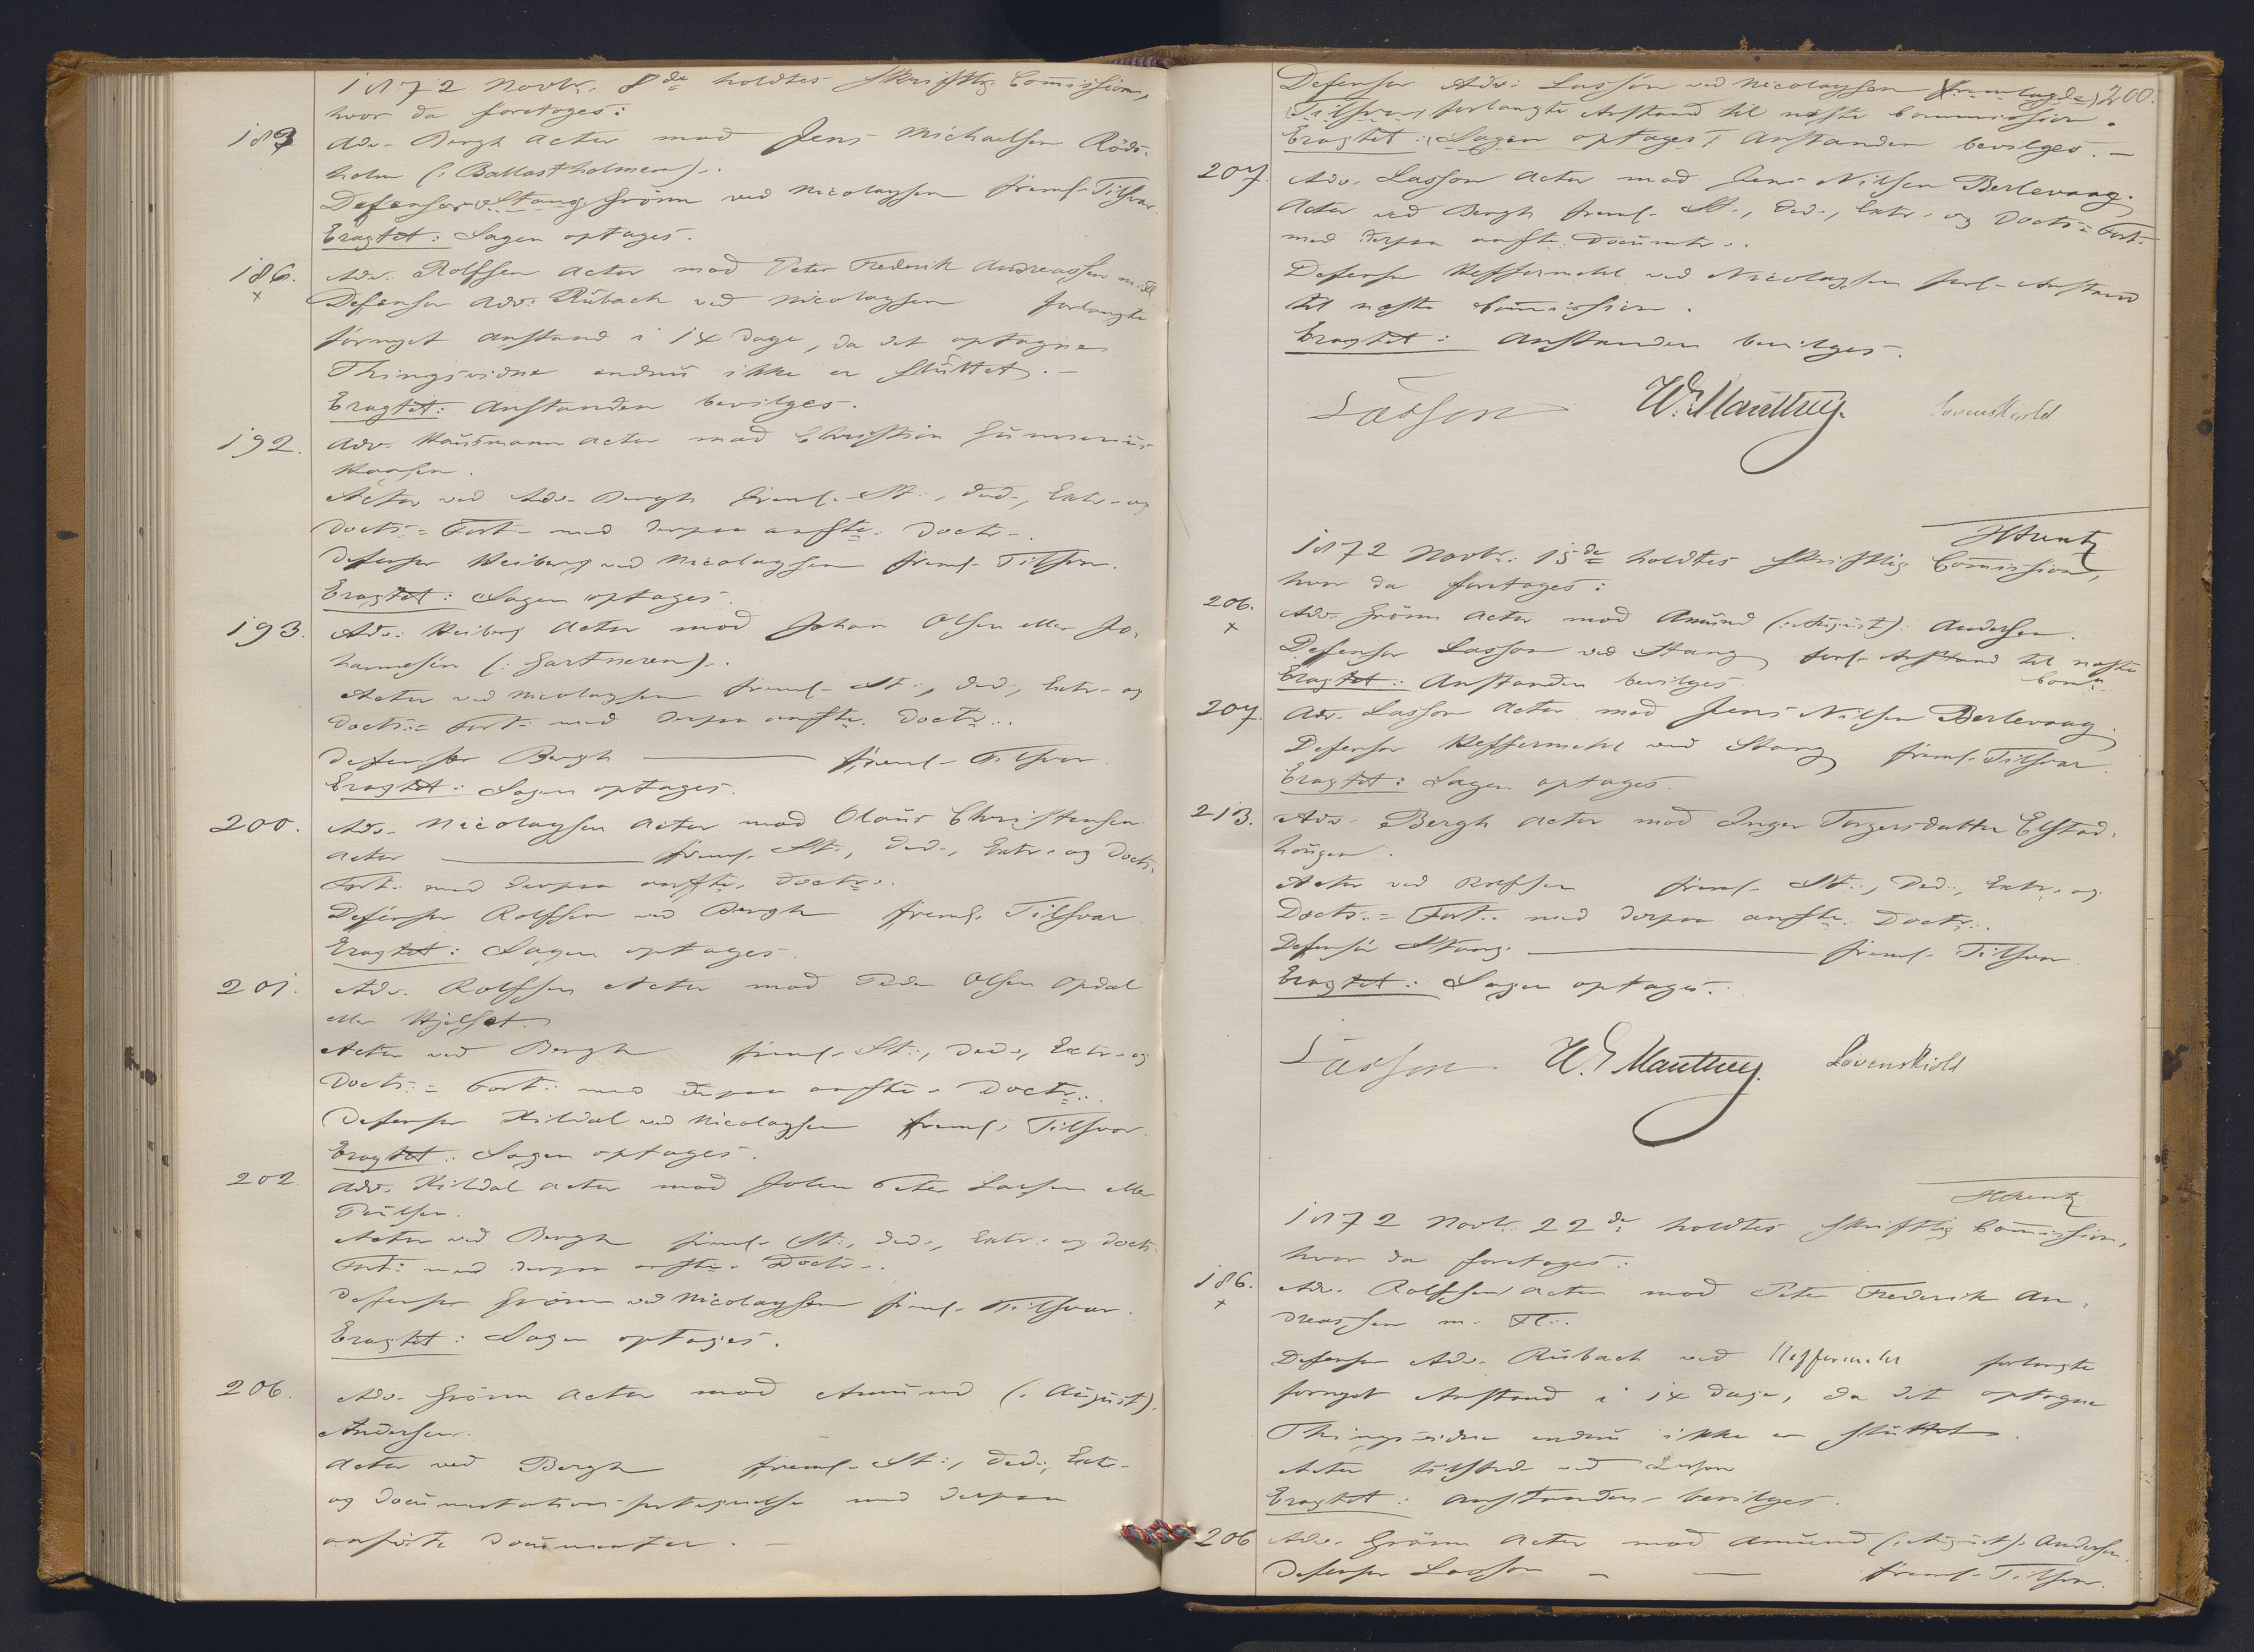 1872 Novbr. 8de holdtes skriftlig Commission,
hvor da foretoges:
183 Adv. Bergh Actor mod Jens Michaelsen Röds-
holm (: Ballastholmen):.
Defensor Stang Grönn ved Nicolaysen freml. Tilsvar.
Eragtet: Sagen optages.
186. Adv. Rolfsen Actor mod Peter Frederik Andreassen m. Fl.
x Defensor Adv: Rübach ved Nicolaysen forlangte
fornyet Anstand i 14 Dage, da det optagne
Thingsvidne endnu ikke er sluttet. –
Eragtet: Anstanden bevilges.
192. Adv. Hausmann Actor mod Christian Gunnerius
Hansen.
Actor ved Adv. Bergh freml. St:, Ded:, Extr- og
Docts:= Fort- med derpaa anfte. Doctr-.
Defensor Heiberg ved Nicolaysen freml. Tilsvar.
Eragtet: Sagen optages.
193. Adv: Heiberg Actor mod Johan Olsen eller Jo-
hannesen (: Gartneren):.
Actor ved Nicolaysen freml- St:, Ded:, Extr- og
Docts:= Fort- med derpaa anfte. Doctr:.
Defensor Bergh ——— freml- Tilsvar.
Eragtet: Sagen optages.
200. Adv. Nicolaysen Actor mod Olaus Christensen
Actor ——— freml- St:, Ded-, Extr- og Docts-
Fort- med derpaa anfte. Doctr:.
Defensor Rolfsen ved Bergh freml. Tilsvar
Eragtet: Sagen optages.
201. Adv. Rolfsen Actor mod Peder Olsen Opdal
eller Hjelset.
Actor ved Bergh freml- St:, Ded:, Extr- og
Docts:= Fort: med derpaa anfte- Doctr:.
Defensor Hildal ved Nicolaysen freml. Tilsvar.
Eragtet: Sagen optages.
202. Adv. Hildal Actor mod John Peter Larsen eller
Paulsen.
Actor ved Bergh freml- St:, Ded:, Extr: og Docts-
Fort: med derpaa anfte- Doctr-.
Defensor Grönn ved Nicolaysen freml- Tilsvar.
Eragtet: Sagen optages.
206. Adv. Grönn Actor mod Amund (: August):
Andersen.
Actor ved Bergh freml- St:, Ded:, Extr-
og Documentations-fortegnelse med derpaa
anförte Documenter. –
200.
Defensor Adv: Lasson ved Nicolaysen (fremlagde)
(Tilsvar) forlangte Anstand til næste Commission.
Eragtet: (Sagen optages) Anstanden bevilges. –
207. Adv. Lasson Actor mod Jens Nilsen Berlevaag.
Actor ved Bergh freml- St:, Ded:, Extr- og Docts:= Fort-
med derpaa anfte. Documtr:.
Defensor Heffermehl ved Nicolaysen forl- Anstand
til næste Commission.
Eragtet: Anstanden bevilges.
Lasson W. E. Manthey Løvenskiold
1872 Novbr: 15de holdtes skriftlig Commission,
hvor da foretoges:
206. Adv. Grönn Actor mod Amund (: August): Andersen.
x Defensor Lasson ved Stang forl- Anstand til næste
Comn.
Eragtet: Anstanden bevilges.
207. Adv. Lasson Actor mod Jens Nilsen Berlevaag.
Defensor Heffermehl ved Stang freml- Tilsvar.
Eragtet: Sagen optages.
213. Adv. Bergh Actor mod Inger Torgersdatter Elstad-
haugen.
Actor ved Rolfsen freml- St:, Ded:, Extr- og
Docts:= Fort:. med derpaa anfte. Doctr:.
Defensor Stang ——— freml- Tilsvar
Eragtet: Sagen optages.
Lasson W. E. Manthey. Løvenskiold
1872 Novbr. 22de holdtes skriftlig Commission,
hvor da foretoges:
186. Adv. Rolfsen Actor mod Peter Frederik An-
x dreassen m. Fl:.
Defensor Adv. Rübach ved Heffermehl forlangte
fornyet Anstand i 14 Dage, da det optagne
Thingsvidne endnu ikke er sluttet.
Actor tilstede ved Lasson
Eragtet: Anstanden bevilges.
206 Adv. Grönn Actor mod Amund (: August): Andersen.
Defensor Lasson – — freml- Tilsvar.